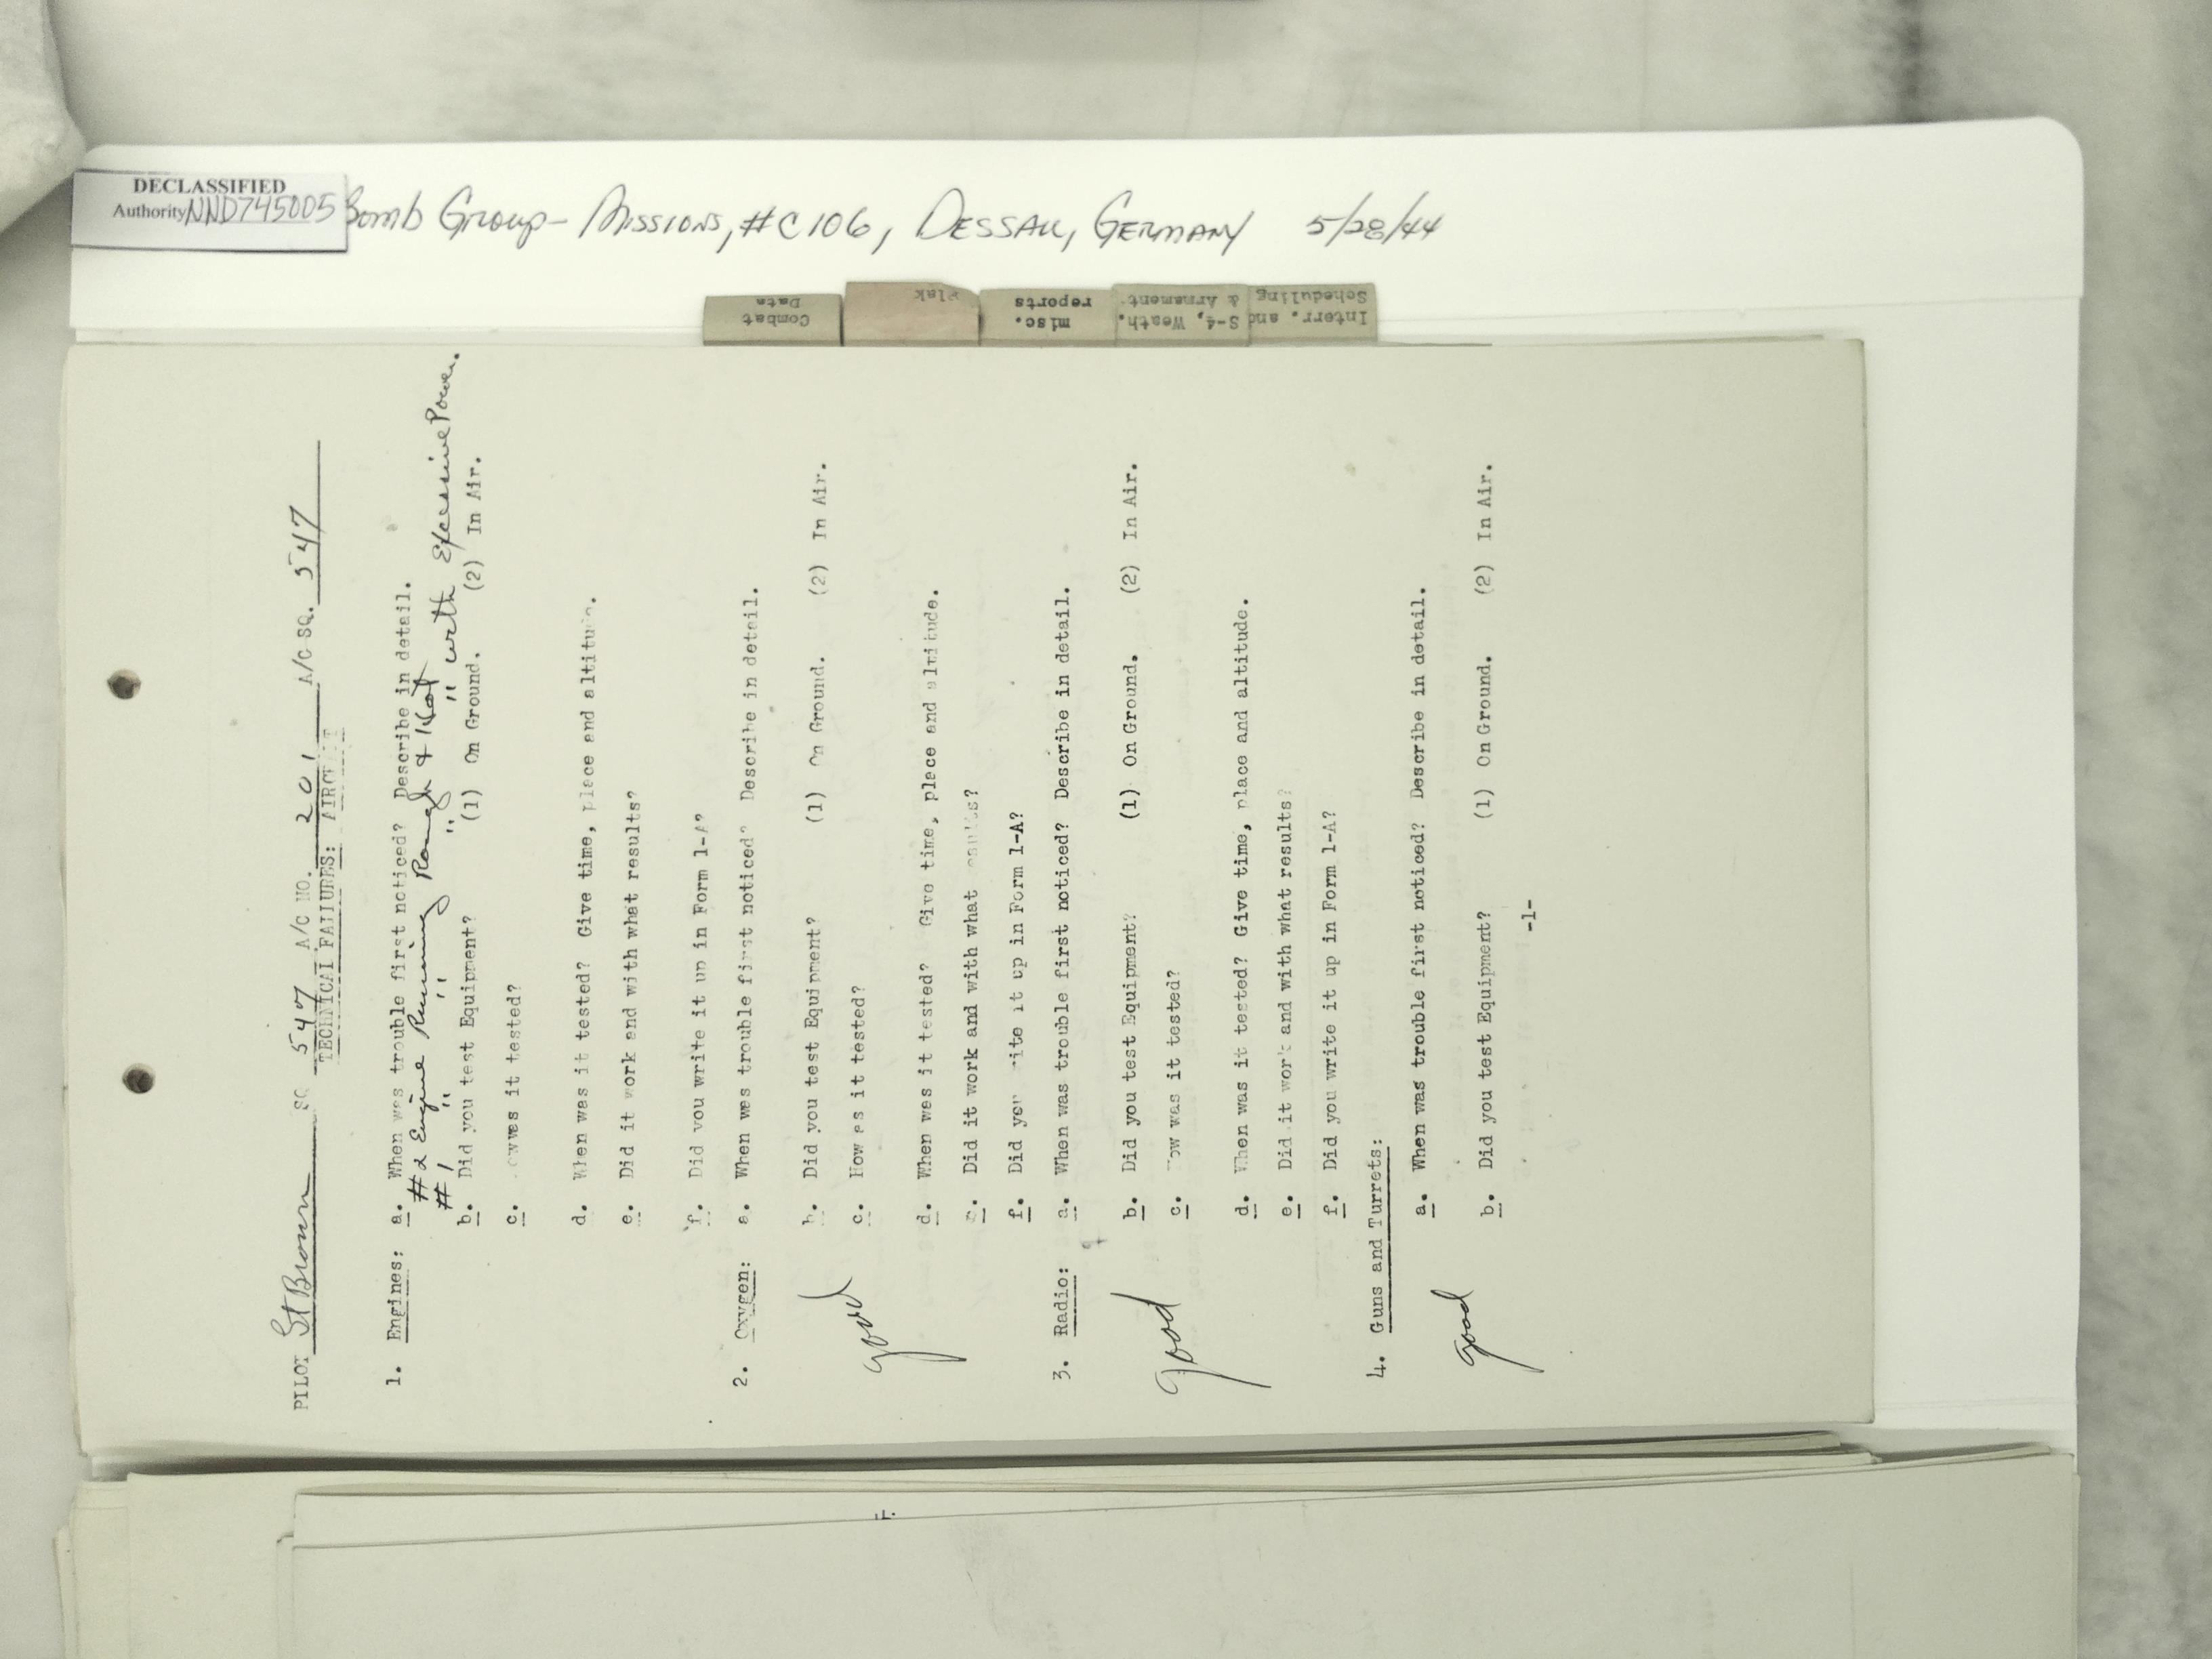 DECLASSIFIED
Authority NND745005
Bomb Group - Missions, #C106, Dessau, Germany 5/28/44
Combat
Data
Flak
misc.
reports
S-4, Weath.
& Armament
Interr. and
Scheduling
PILOT St Brown SQ 547 A/C NO. 201 A/C SQ. 547
TECHNICAL FAILURES: AIRCRAFT
1. Engines: a. When was trouble first noticed? Describe in detail.
#2 Engine Running Rough & Hot
#1 " " " " with Excessive Power.
b. Did you test Equipment? (1) On Ground. (2) In Air.
c. How was it tested?
d. When was it tested? Give time, place and altitude.
e. Did it work and with what results?
f. Did you write it up in Form 1-A?
2. Oxygen: a. When was trouble first noticed? Describe in detail.
b. Did you test Equipment? (1) On Ground. (2) In Air.
good
c. How as it tested?
d. When was it tested? Give time, place and altitude.
e. Did it work and with what results?
f. Did you write it up in Form 1-A?
3. Radio: a. When was trouble first noticed? Describe in detail.
b. Did you test Equipment? (1) On Ground. (2) In Air.
good
c. How was it tested?
d. When was it tested? Give time, place and altitude.
e. Did it work and with what results?
f. Did you write it up in Form 1-A?
4. Guns and Turrets:
a. When was trouble first noticed? Describe in detail.
good
b. Did you test Equipment? (1) On Ground. (2) In Air.
-1-
F.